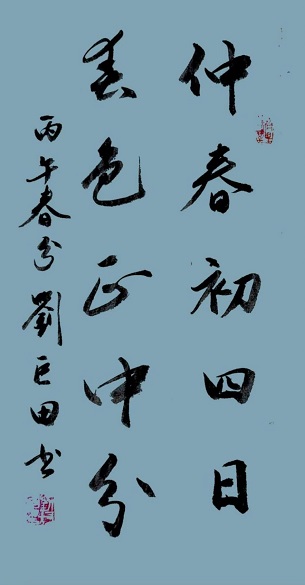 仲春初四日
春色正中分
丙午春分劉巨田书